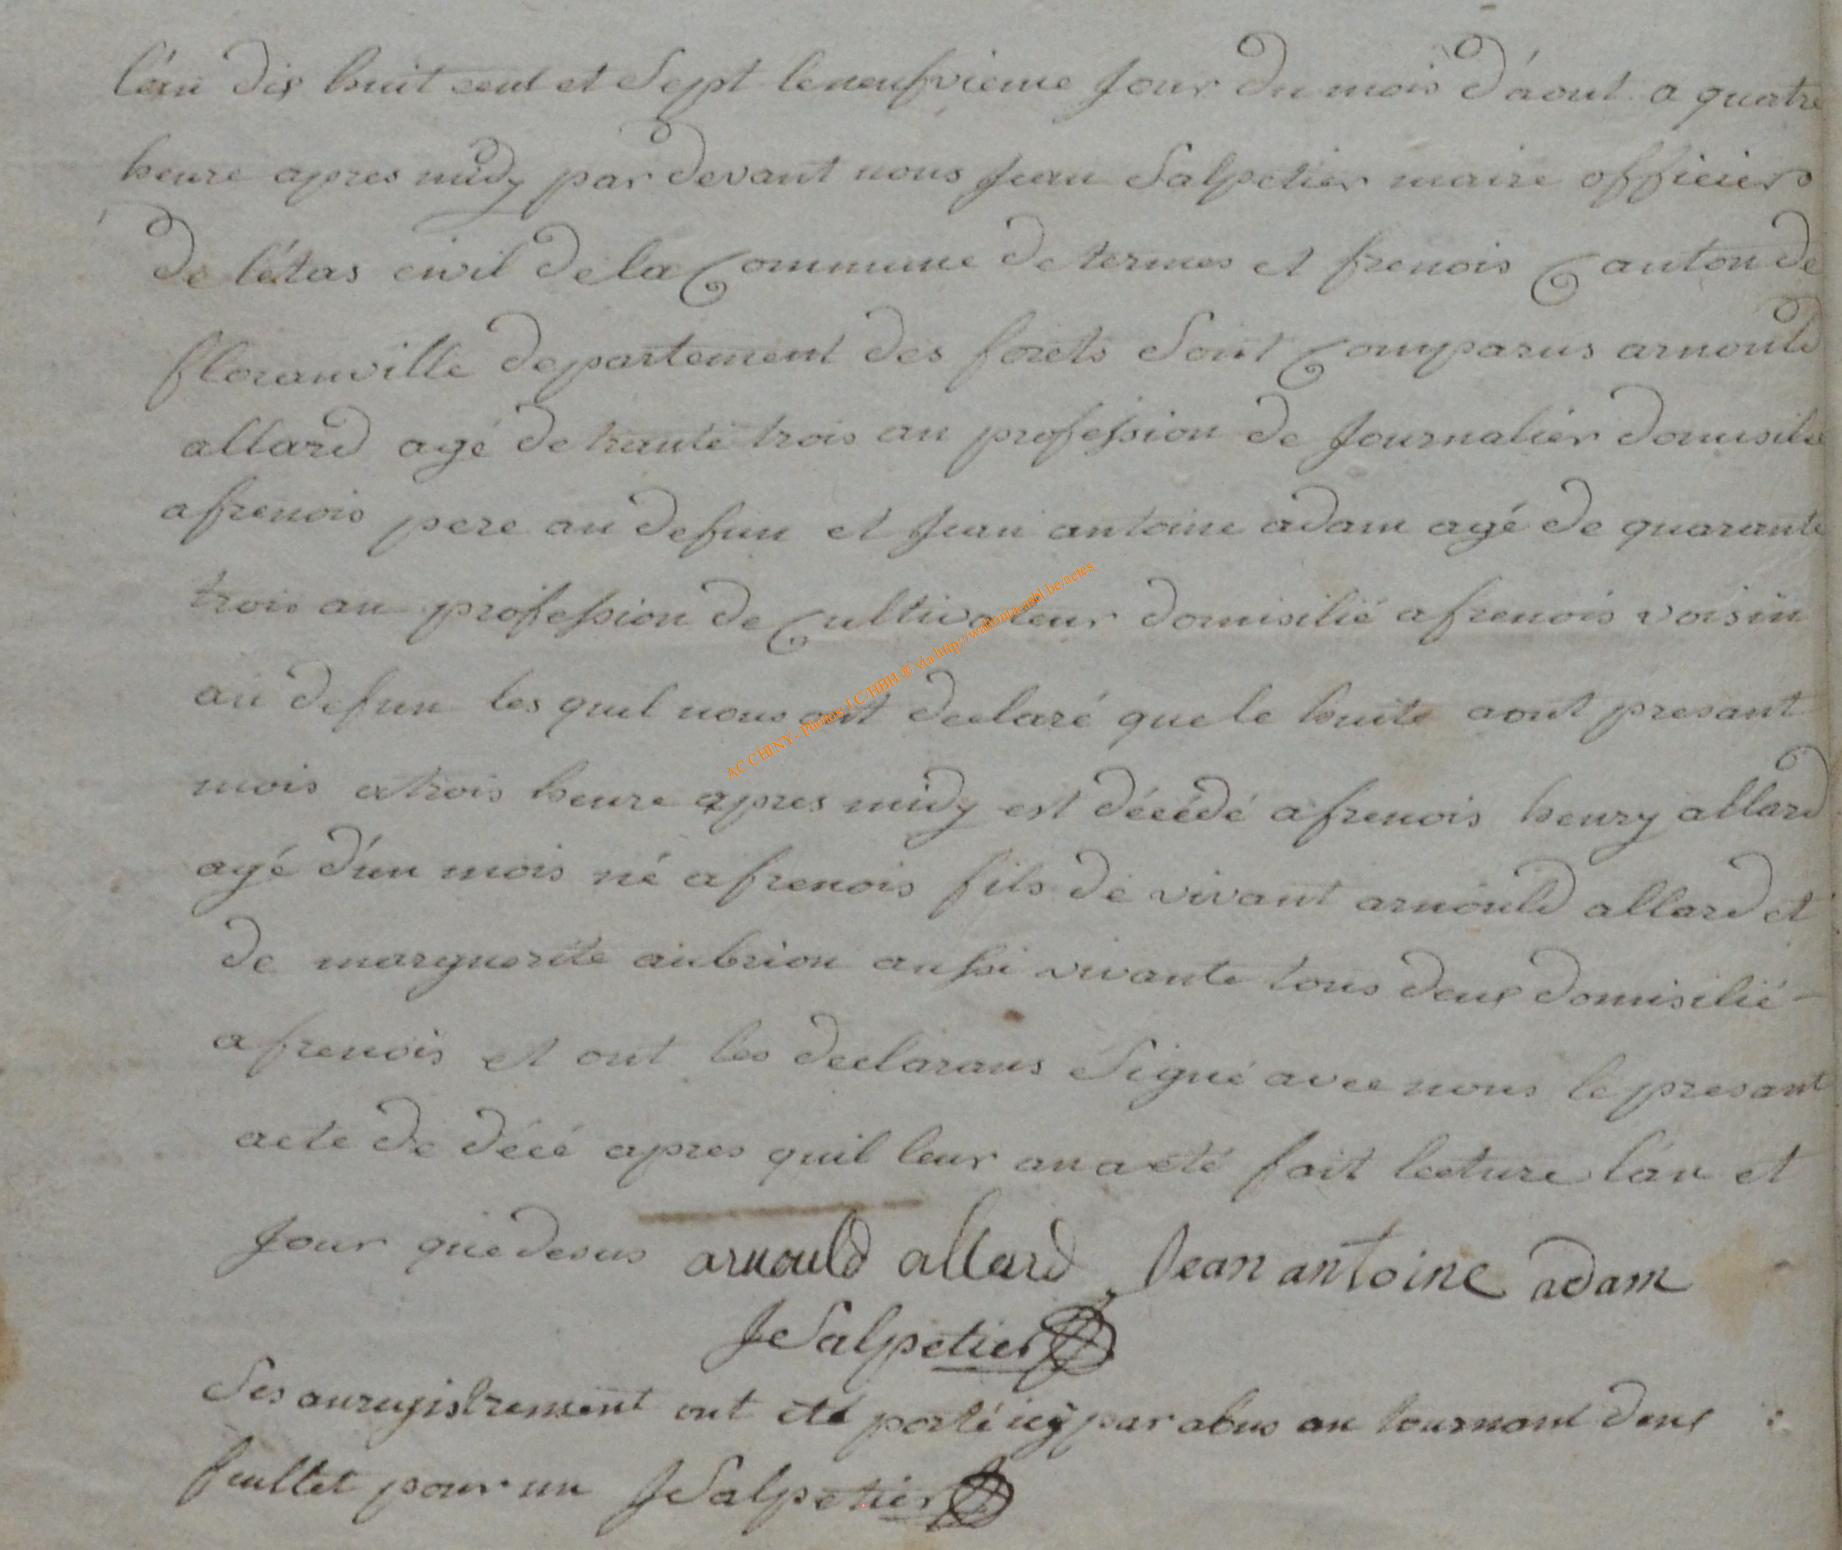 l'an dix huit cent et Sept le neufvieme Jour du mois d'aout a quatre
heure apres midy par devant nous Jean Salpetier maire officier
de létas civil de la Commune de termes et frenois Canton de
floranville departement des forets Sont Comparus arnould
allard agé de trante trois an profession de Journalier domisilié
a frenois pere au defun et Jean antoine adam agé de quarante
trois an profession de Cultivateur domisilié a frenois voisin
au defun les quel nous ont declaré que le huite aout presant
mois a trois heure apres midy est décédé a frenois henry allard
agé d'un mois né a frenois fils de vivant arnould allard et
de marguerite aubrion aussi vivante tous deux domisilié
a frenois et ont les declarans Signé avec nous le presant
acte de décé apres quil leur an a eté fait lecture l'an et
Jour que desus arnould allard Jean antoine adam
J Salpetier
Ses anregistrement ont eté porté icy par abus an tournant deux
feullet pour un J Salpetier
AC CHINY - Photos J.C HBH © via http://wallonia-asbl.be/actes